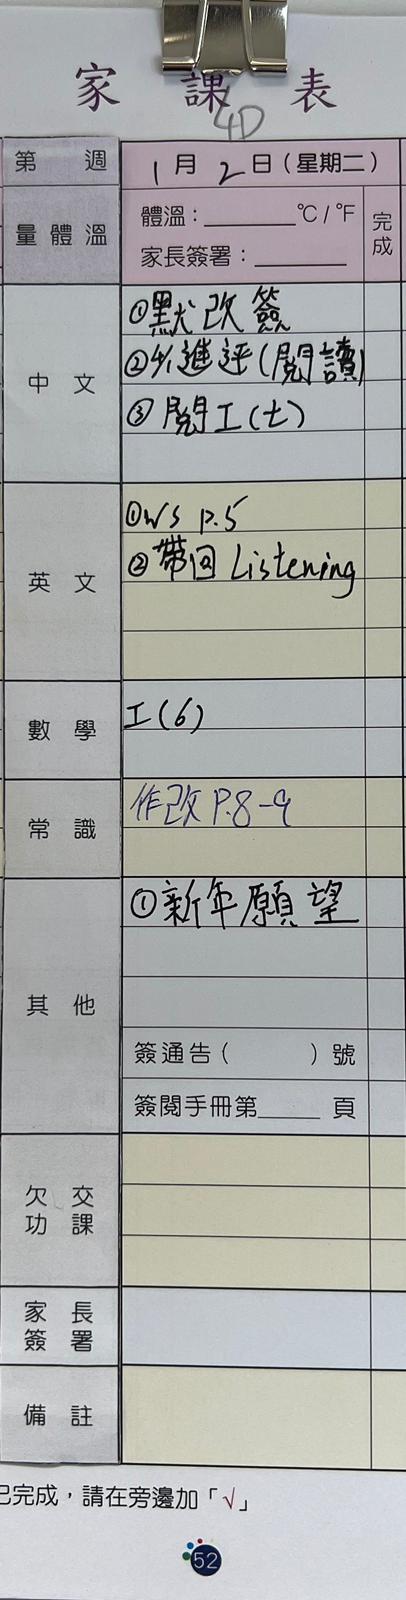 家課表
4D
第 週 1月2日(星期二)
量體溫 體溫:______℃/℉ 完成
家長簽署:______
中文 ①默改簽
②4/1進評(閱讀)
③閱工(七)
英文 ①WS P.5
②帶回 Listening
數學 工(6)
常識 作改 P.8-9
其他 ①新年願望
簽通告( )號
簽閱手冊第____頁
欠交功課
家長簽署
備註
已完成,請在旁邊加「√」
52